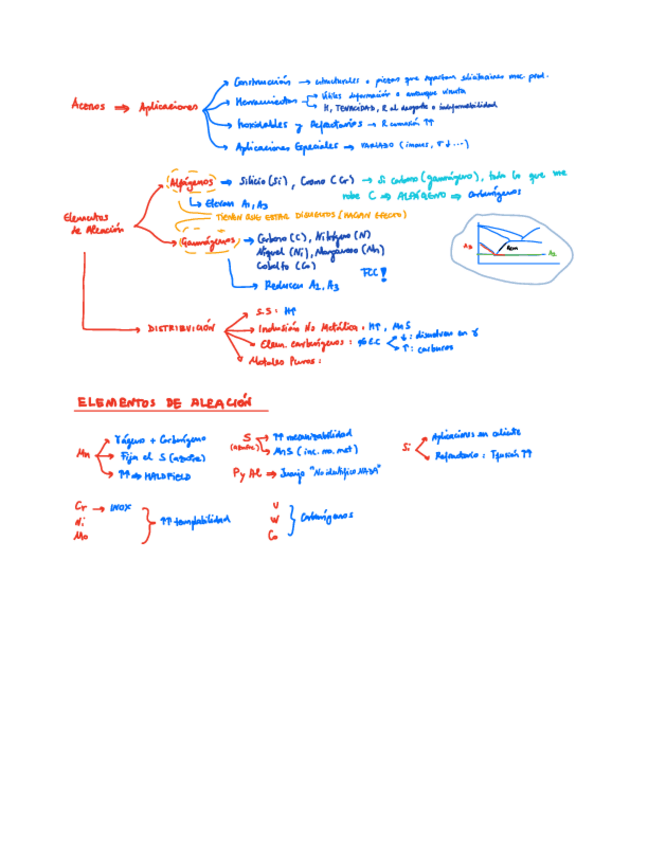 Aceros ⇒ Aplicaciones
Construcción → estructurales o piezas que soportan solicitaciones mec. prod.
Herramientas → Útiles deformación o arranque viruta
→ H, TENACIDAD, R al desgaste e indeformabilidad
Inoxidables y Refractarios → R corrosión ↑↑
Aplicaciones Especiales → VARIADO (imanes, ...)
Elementos de Aleación
Alfágenos → Silicio (Si), Cromo (Cr) → Si carbono (gammágeno), todo lo que me
robe C → ALFÁGENO ⇒ carburígenos
↳ Elevan A1, A3
TIENEN QUE ESTAR DISUELTOS (HAGAN EFECTO)
Gammágenos → Carbono (C), Nitrógeno (N)
Níquel (Ni), Manganeso (Mn)
Cobalto (Co)
FCC!
Reducen A1, A3
A3
Acm
A1
DISTRIBUCIÓN
S.S: H↑
Inclusión No Metálica: H↑, MnS
Elem. carburígenos: %C ↓: disuelven en γ
↑: carburos
Metales Puros:
ELEMENTOS DE ALEACIÓN
Mn
γágeno + Carburígeno
Fija el S (azufre)
↑↑ ⇒ HADFIELD
S (azufre)
↑↑ mecanizabilidad
MnS (inc. no. met)
P y Al ⇒ "No identifico NADA"
Si
Aplicaciones en caliente
Refractario: Tfusión ↑↑
Cr → INOX
Ni
Mo
↑↑ templabilidad
V
W
Co
Carburígenos